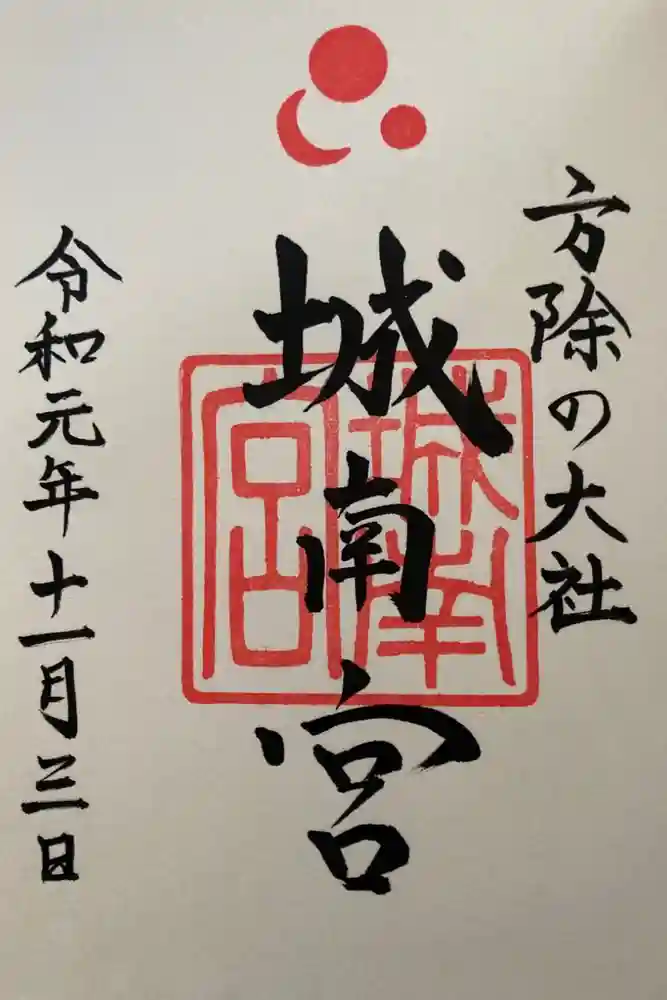 方除の大社
城南宮
城南宮
令和元年十一月三日